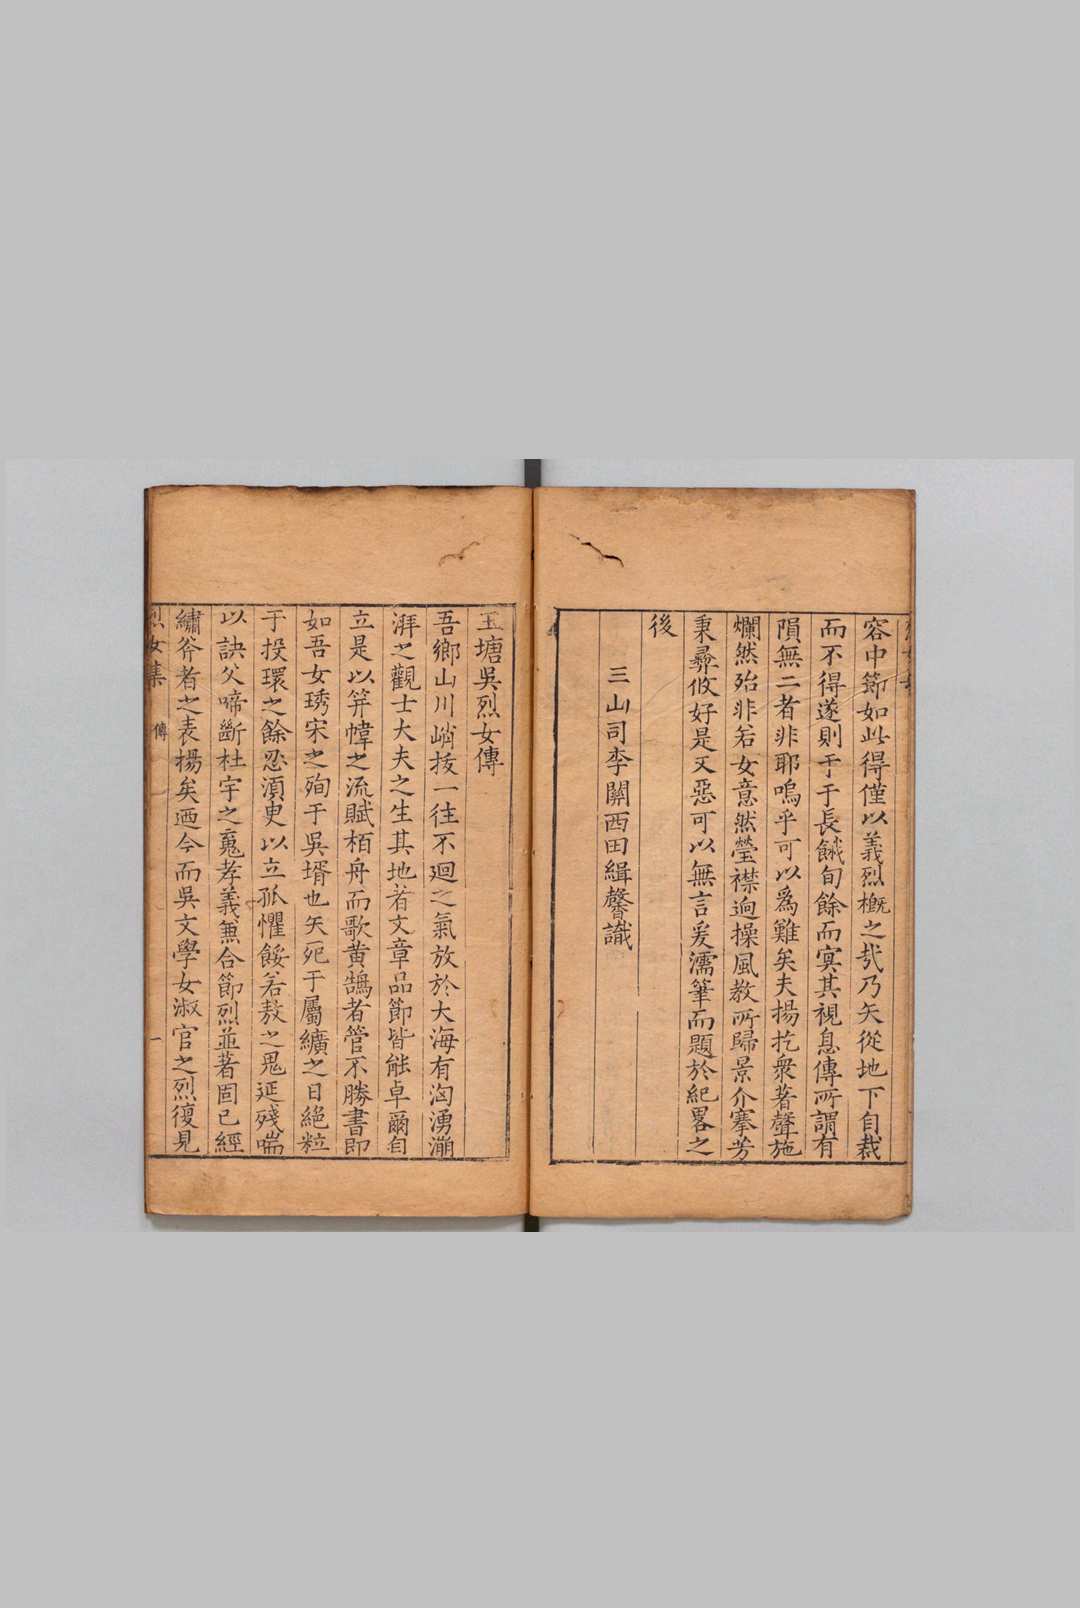 容中節如此得僅以義烈槪之㢤乃矢從地下自裁
而不得遂則于于長餓旬餘而㝠其視息傳所謂有
隕無二者非耶嗚乎可以爲難矣夫揚扢衆著聲施
爛然殆非若女意然瑩襟逈操風敎所歸景介搴芳
秉彞攸好是又惡可以無言爰濡筆而題於紀畧之
後
三山司李關西田緝馨識
玉塘吳烈女傳
吾鄉山川峭拔一往不廻之氣放於大海有洶湧㴑
湃之觀士大夫之生其地者文章品節皆能卓爾自
立是以笄幃之流賦栢舟而歌黃鵠者管不勝書即
如吾女琇宋之殉于吳壻也矢死于屬纊之日絕粒
于投環之餘忍須臾以立孤懼餒若敖之鬼延殘喘
以訣父啼斷杜宇之䰟孝義無合節烈並著固已經
繡斧者之表揚矣迺今而吳文學女淑官之烈復見
烈女集
傳
一